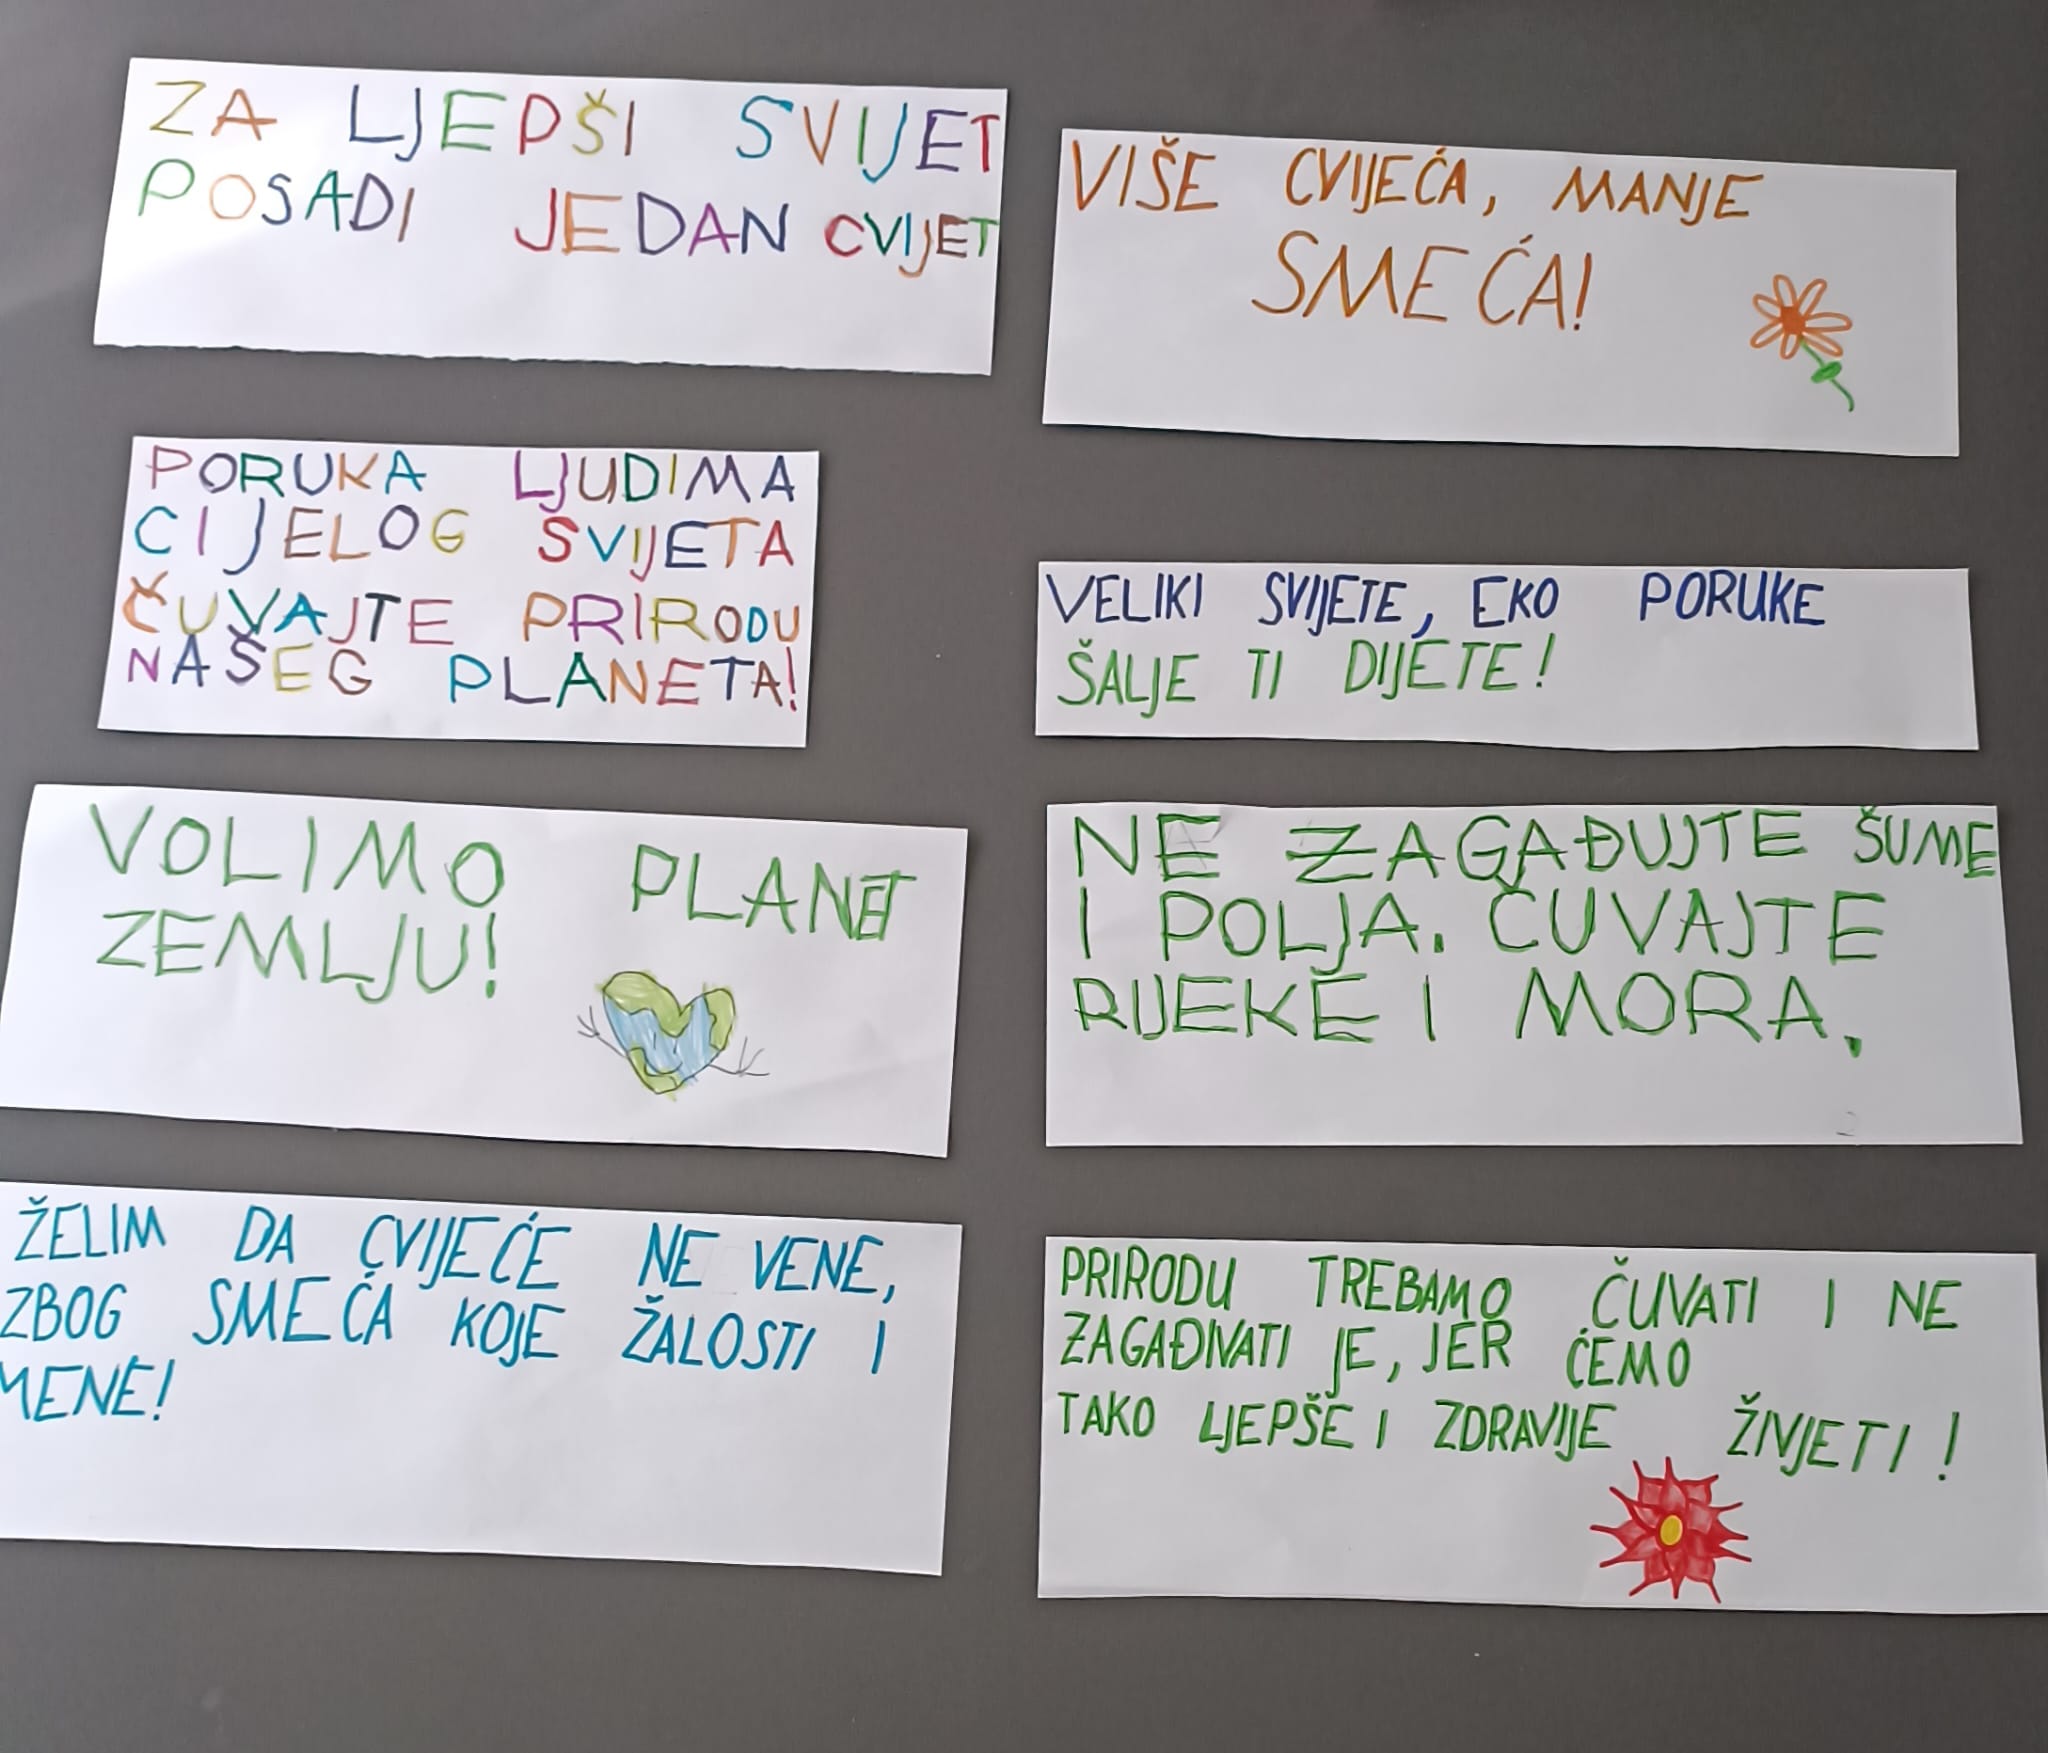 ZA LJEPŠI SVIJET
POSADI JEDAN CVIJET
VIŠE CVIJEĆA, MANJE
SMEĆA!
PORUKA LJUDIMA
CIJELOG SVIJETA
ČUVAJTE PRIRODU
NAŠEG PLANETA!
VELIKI SVIJETE, EKO PORUKE
ŠALJE TI DIJETE!
VOLIMO PLANET
ZEMLJU!
NE ZAGAĐUJTE ŠUME
I POLJA. ČUVAJTE
RIJEKE I MORA.
ŽELIM DA CVIJEĆE NE VENE,
ZBOG SMEĆA KOJE ŽALOSTI I
MENE!
PRIRODU TREBAMO ČUVATI I NE
ZAGAĐIVATI JE, JER ĆEMO
TAKO LJEPŠE I ZDRAVIJE ŽIVJETI!